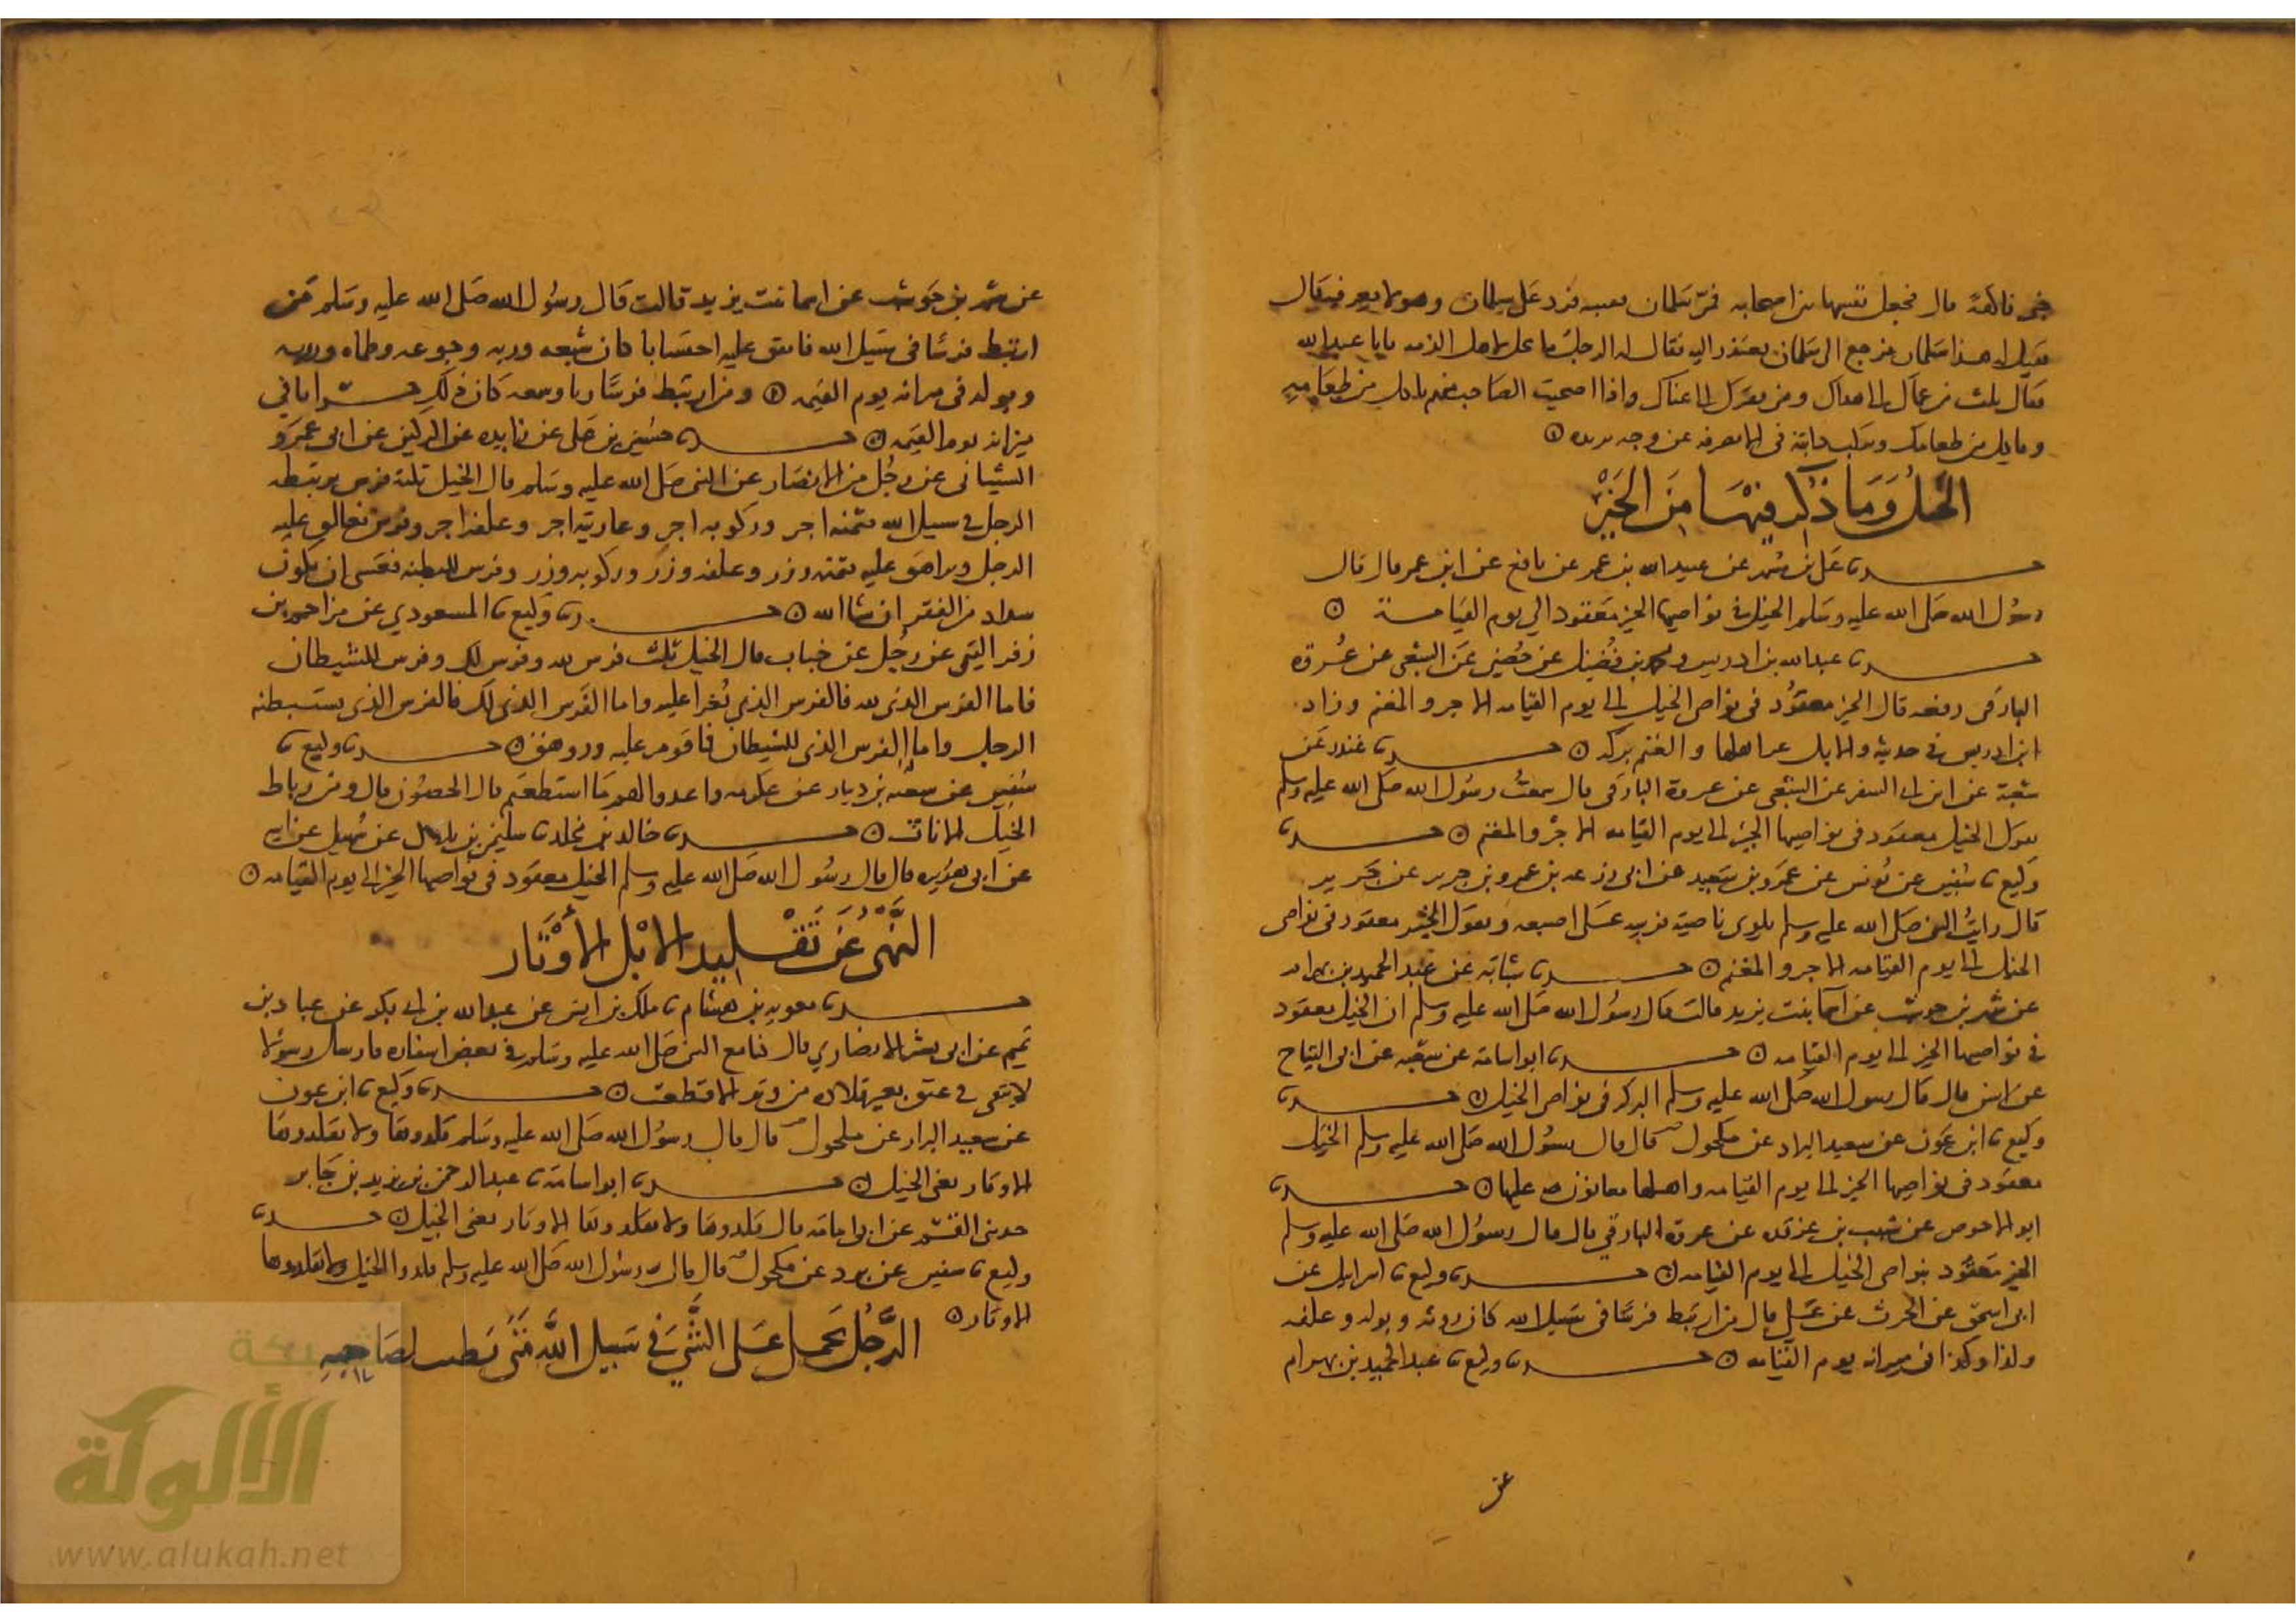 خبز فاكهة قال فجعل يقسمها بين اصحابه فمر سلمان بسبيه فرد على سلمان وهو لا يعرفه فقال
فقيل له هذا سلمان فرجع الى سلمان يعتذر اليه فقال له الرجل ما يحل لاهل الذمه يابا عبدالله
فقال ثلث من عماك الى هداك ومن فقرك الى غناك واذا صحبت الصاحب منهم تاكل من طعامه
وياكل من طعامك ويركب دابتك في الا تصرفه عن وجه يريده
الخيل وما ذكر فيها من الخير
حدثنا علي بن مسهر عن عبيد الله بن عمر عن نافع عن ابن عمر قال قال
رسول الله صلى الله عليه وسلم الخيل في نواصيها الخير معقود الي يوم القيامة
حدثنا عبدالله بن ادريس وابن فضيل عن حصين عن الشعبي عن عروة
البارقي رفعه قال الخير معقود في نواصي الخيل الى يوم القيامه الاجر والمغنم وزاد
ابن ادريس في حديثه والابل عز اهلها والغنم بركه حدثنا غندر عن
شعبة عن ابن ابي السفر عن الشعبي عن عروة البارقي قال سمعت رسول الله صلى الله عليه وسلم
يقول الخيل معقود في نواصيها الخير الى يوم القيامه الاجر والمغنم حدثنا
وكيع نا سفين عن يونس عن عمرو بن سعيد عن ابي زرعه بن عمرو بن جرير عن جرير
قال رايت النبي صلى الله عليه وسلم يلوي ناصية فرسه على اصبعه ويقول الخير معقود في نواصي
الخيل الى يوم القيامه الاجر والمغنم حدثنا شبابه عن عبد الحميد بن بهرام
عن شهر بن حوشب عن اسما بنت يزيد قالت قال رسول الله صلى الله عليه وسلم ان الخيل معقود
في نواصيها الخير الى يوم القيامه حدثنا ابو اسامة عن شعبه عن ابي التياح
عن انس قال قال رسول الله صلى الله عليه وسلم البركه في نواصي الخيل حدثنا
وكيع نا ابن عون عن سعيد البراد عن مكحول قال قال رسول الله صلى الله عليه وسلم الخيل
معقود في نواصيها الخير الى يوم القيامه واهلها معانون عليها حدثنا
ابو الاحوص عن شبيب بن غرقده عن عروة البارقي قال قال رسول الله صلى الله عليه وسلم
الخير معقود بنواصي الخيل الى يوم القيامه حدثنا وكيع نا اسرايل عن
ابي اسحق عن الحرث عن علي قال من ارتبط فرسا في سبيل الله كان روثه وبوله وعلفه
وكذا وكذا في ميزانه يوم القيامه حدثنا وكيع نا عبد الحميد بن بهرام
عن
عن شهر بن حوشب عن اسما بنت يزيد قالت قال رسول الله صلى الله عليه وسلم من
ارتبط فرسا في سبيل الله فانفق عليه احتسابا كان شبعه وريه وجوعه وظماه وروثه
وبوله في ميزانه يوم القيمه ومن ارتبط فرسا ريا وسمعه كان ذلك خسرانا في
ميزانه يوم القيمه حدثنا حسين بن علي عن زايده عن الركين عن ابي عمرو
الشيباني عن رجل من الانصار عن النبي صلى الله عليه وسلم قال الخيل ثلثة فرس يرتبطه
الرجل في سبيل الله فثمنه اجر وركوبه اجر وعاريته اجر وعلفه اجر وفرس يغالق عليه
الرجل ويراهن عليه فثمنه وزر وعلفه وزر وركوبه وزر وفرس للبطنه فعسى ان يكون
سدادا من الفقر ان شا الله حدثنا وكيع نا المسعودي عن مزاحم بن
زفر التيمي عن رجل عن خباب قال الخيل ثلث فرس لله وفرس لك وفرس للشيطان
فاما الفرس الذي لله فالفرس الذي يغزا عليه واما الفرس الذي لك فالفرس الذي يستبطنه
الرجل واما الفرس الذي للشيطان فما قومر عليه وروهن حدثنا وكيع نا
سفين عن شعبه بن دينار عن عكرمه واعدوا لهم ما استطعتم قال الحصون قال ومن رباط
الخيل الاناث حدثنا خالد بن مخلد نا سليمن بن بلال عن سهيل عن ابيه
عن ابي هريره قال قال رسول الله صلى الله عليه وسلم الخيل معقود في نواصيها الخير الى يوم القيامه
النهي عن تقليد الابل الأوتار
حدثنا معويه بن هشام نا ملك بن انس عن عبدالله بن ابي بكر عن عباد بن
تميم عن ابي بشر الانصاري قال كنا مع النبي صلى الله عليه وسلم في بعض اسفاره فارسل رسولا
لا يبقى في عنق بعير قلاده من وتر الا قطعت حدثنا وكيع نا ابن عون
عن سعيد البراد عن مكحول قال قال رسول الله صلى الله عليه وسلم قلدوها ولا تقلدوها
الاوتار يعني الخيل حدثنا ابو اسامة نا عبد الرحمن بن يزيد بن جابر
حدثني القسم عن ابي امامه قال قلدوها ولا تقلدوها الاوتار يعني الخيل حدثنا
وكيع نا سفين عن برد عن مكحول قال قال رسول الله صلى الله عليه وسلم قلدوا الخيل ولا تقلدوها
الاوتار
الرجل يحمل على الشي في سبيل الله متى يطيب لصاحبه
شبكة
الألوكة
www.alukah.net